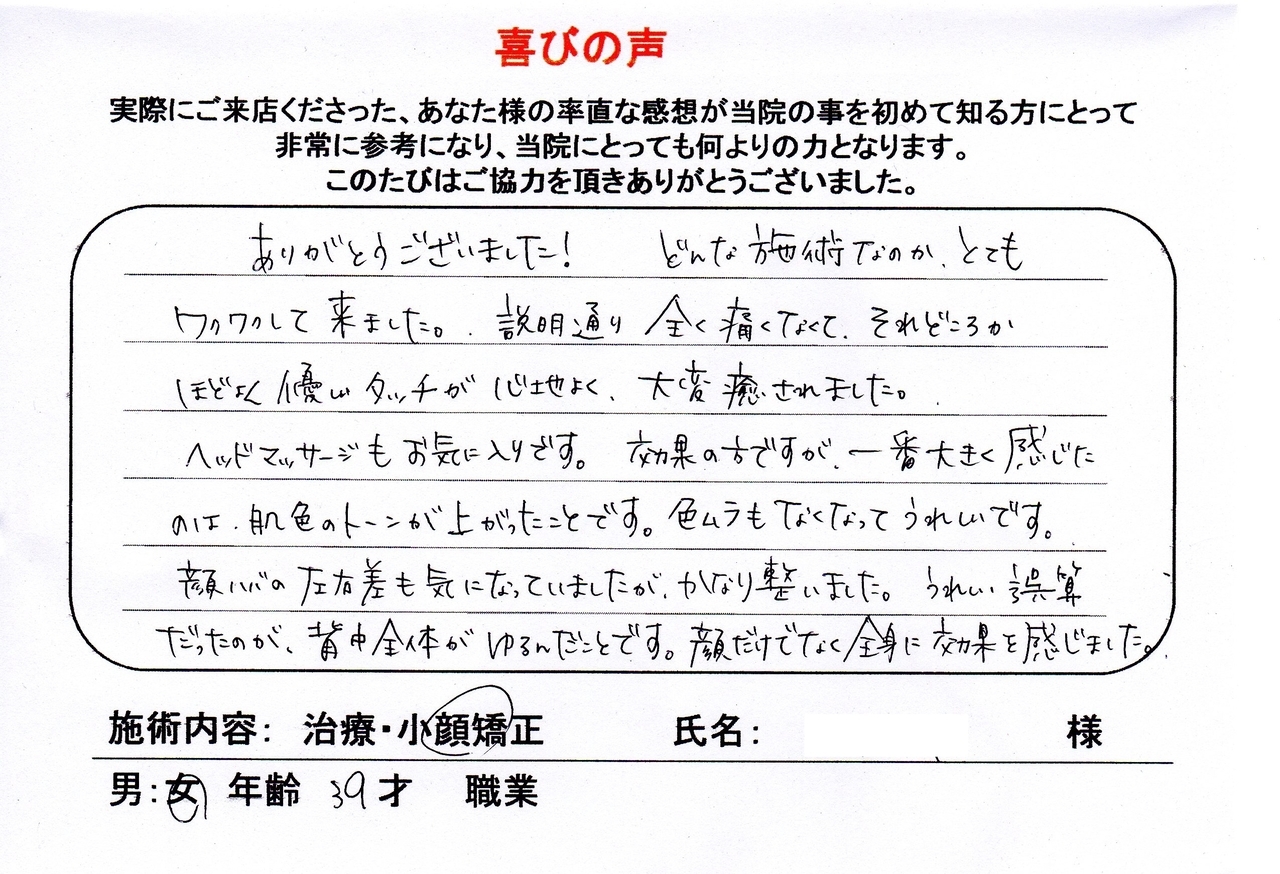 喜びの声
実際にご来店くださった、あなた様の率直な感想が当院の事を初めて知る方にとって
非常に参考になり、当院にとっても何よりの力となります。
このたびはご協力を頂きありがとうございました。
ありがとうございました! どんな施術なのか、とても
ワクワクして来ました。説明通り 全く痛くなくて、それどころか
ほどよく優しいタッチが心地よく、大変癒されました。
ヘッドマッサージもお気に入りです。効果の方ですが、一番大きく感じた
のは、肌色のトーンが上がったことです。色ムラもなくなってうれしいです。
顔ハバの左右差も気になっていましたが、かなり整いました。うれしい誤算
だったのが、背中全体がゆるんだことです。顔だけでなく全身に効果を感じました。
施術内容: 治療・小顔矯正 氏名: 様
男:女 年齢 39才 職業